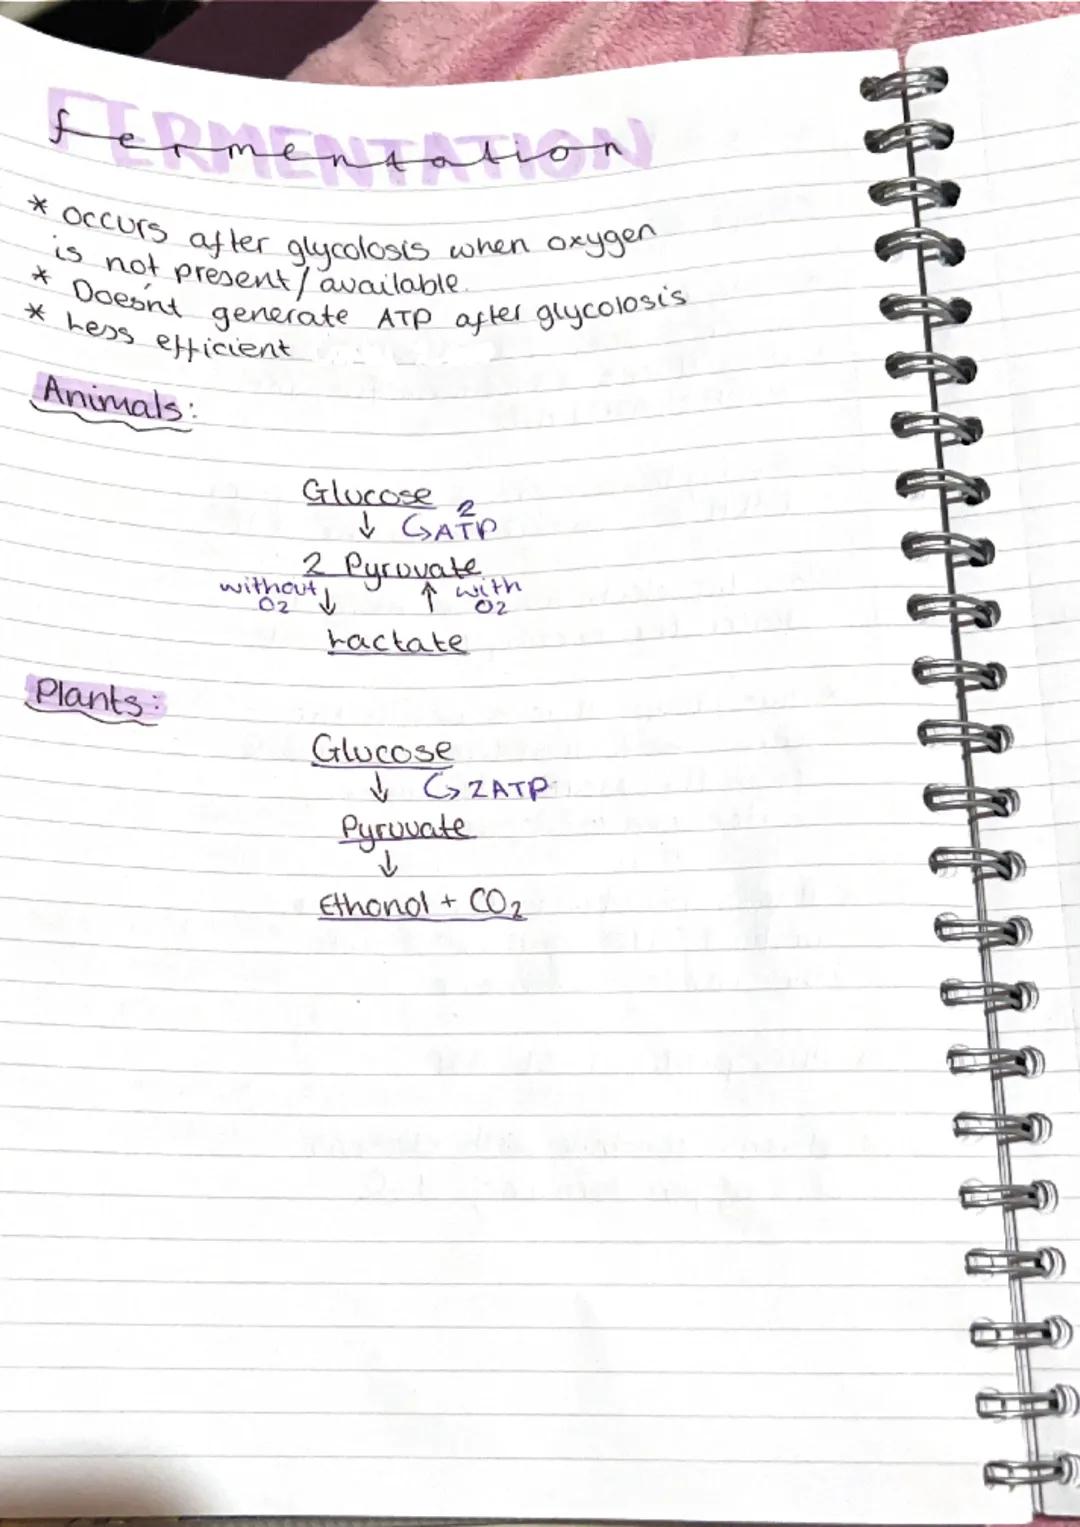 FERMENTATION
fermentation
* occurs after glycolosis when oxygen
is not present/available.
* Doesn't generate ATP after glycolosis
* Less efficient
Animals:
Glucose
↓ ↳ 2 ATP
2 Pyruvate
without O2 ↓ ↑ with O2
Lactate
Plants:
Glucose
↓ ↳ 2ATP
Pyruvate
↓
Ethonol + CO2